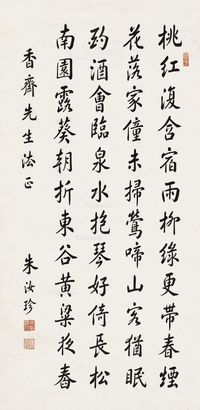 桃紅復含宿雨柳綠更帶春煙
花落家僮未掃鶯啼山客猶眠
酌酒會臨泉水抱琴好倚長松
南園露葵朝折東谷黃粱夜舂
香齋先生法正
朱汝珍